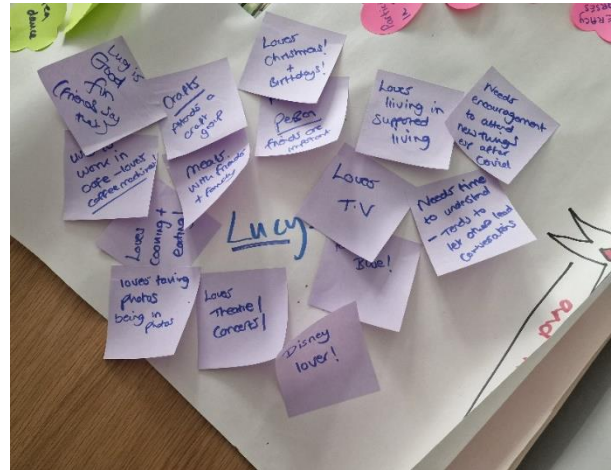 Lucy is
Good
Fun
(friends say
this)
Crafts
Attends a
craft group
Loves
Christmas!
+
Birthdays!
Person
friends are
important
Loves
living in
supported
living
Needs
encouragement
to attend
new things
esp after
Covid
work in
cafe - loves
coffee machine!
Meals
with friends
+ family
Loves
T.V
Needs time
to understand
- Tends to
let others lead
conversations
Loves
cooking +
eating!
Lucy
Blue!
loves taking
photos
being in
photos
Loves
Theatre/
Concerts!
Disney
lover!
and